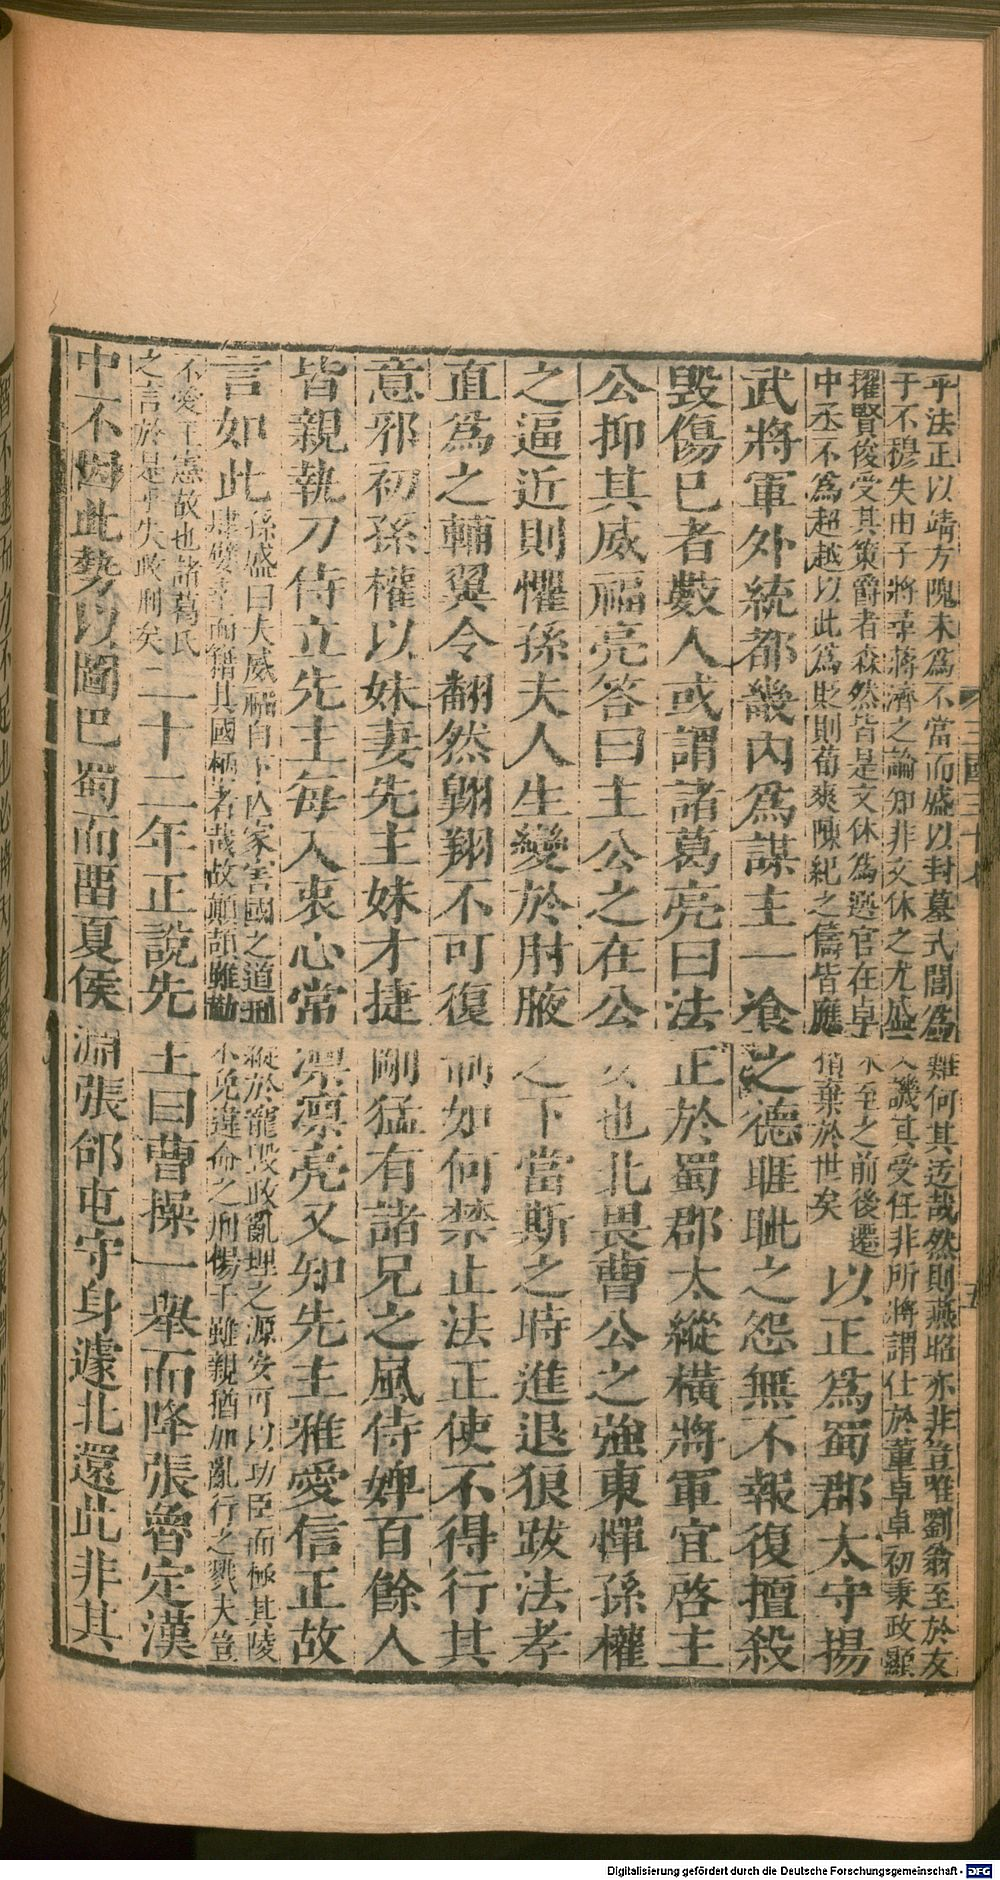 乎法正以靖方隗未爲不當而盛以封墓式閭爲難何其迃哉然則燕昭亦非豈唯劉翁至於友
于不穆失由子將尋蔣濟之論知非文休之尤盛又譏其受任非所將謂仕於董卓卓初秉政顯
擢賢俊受其策爵者森然皆是文休爲選官在卓未至之前後遷
中丞不爲超越以此爲貶則荀爽陳紀之儔皆應擯棄於世矣以正爲蜀郡太守揚
武將軍外統都畿內爲謀主一飡之德睚眦之怨無不報復擅殺
毀傷已者數人或謂諸葛亮曰法正於蜀郡太縱橫將軍宜啓主
公抑其威福亮答曰主公之在公安也北畏曹公之強東憚孫權
之逼近則懼孫夫人生變於肘腋之下當斯之時進退狼跋法孝
直爲之輔翼令翻然翱翔不可復制如何禁止法正使不得行其
意邪初孫權以妹妻先主妹才捷剛猛有諸兄之風侍婢百餘人
皆親執刀侍立先主每入衷心常凛凛亮又知先主雅愛信正故
言如此孫盛曰夫威福自下亡家害國之道刑縱於寵毀政亂理之源安可以功臣而極其陵
肆嬖幸而藉其國柄者哉故顛頡雖勤不免違命之刑楊干雖親猶加亂行之戮夫豈
不愛王憲故也諸葛氏
之言於是乎失政刑矣二十二年正說先主曰曹操一舉而降張魯定漢
中不因此勢以圖巴蜀而留夏侯淵張郃屯守身遽北還此非其
三國三十七
五
Digitalisierung gefördert durch die Deutsche Forschungsgemeinschaft - DFG